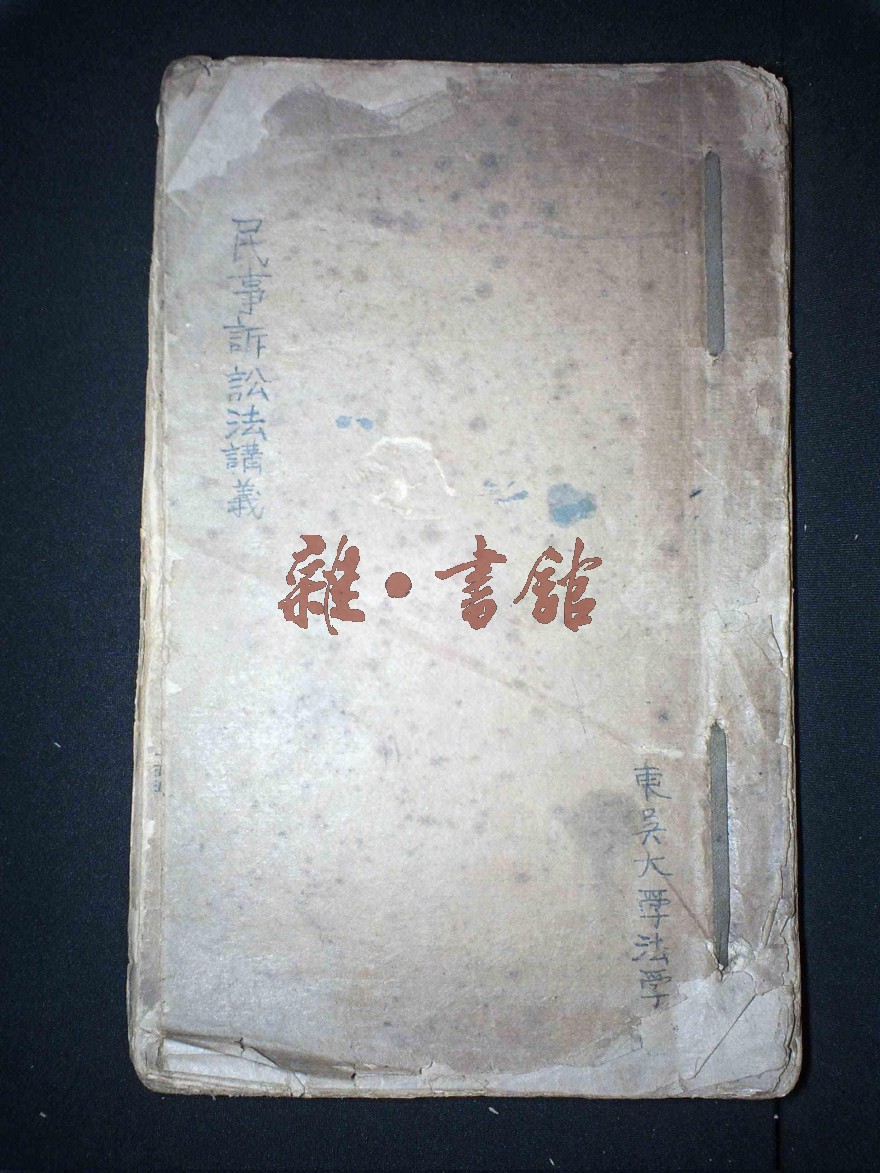 民事訴訟法講義
雜·書館
東吳大學法學